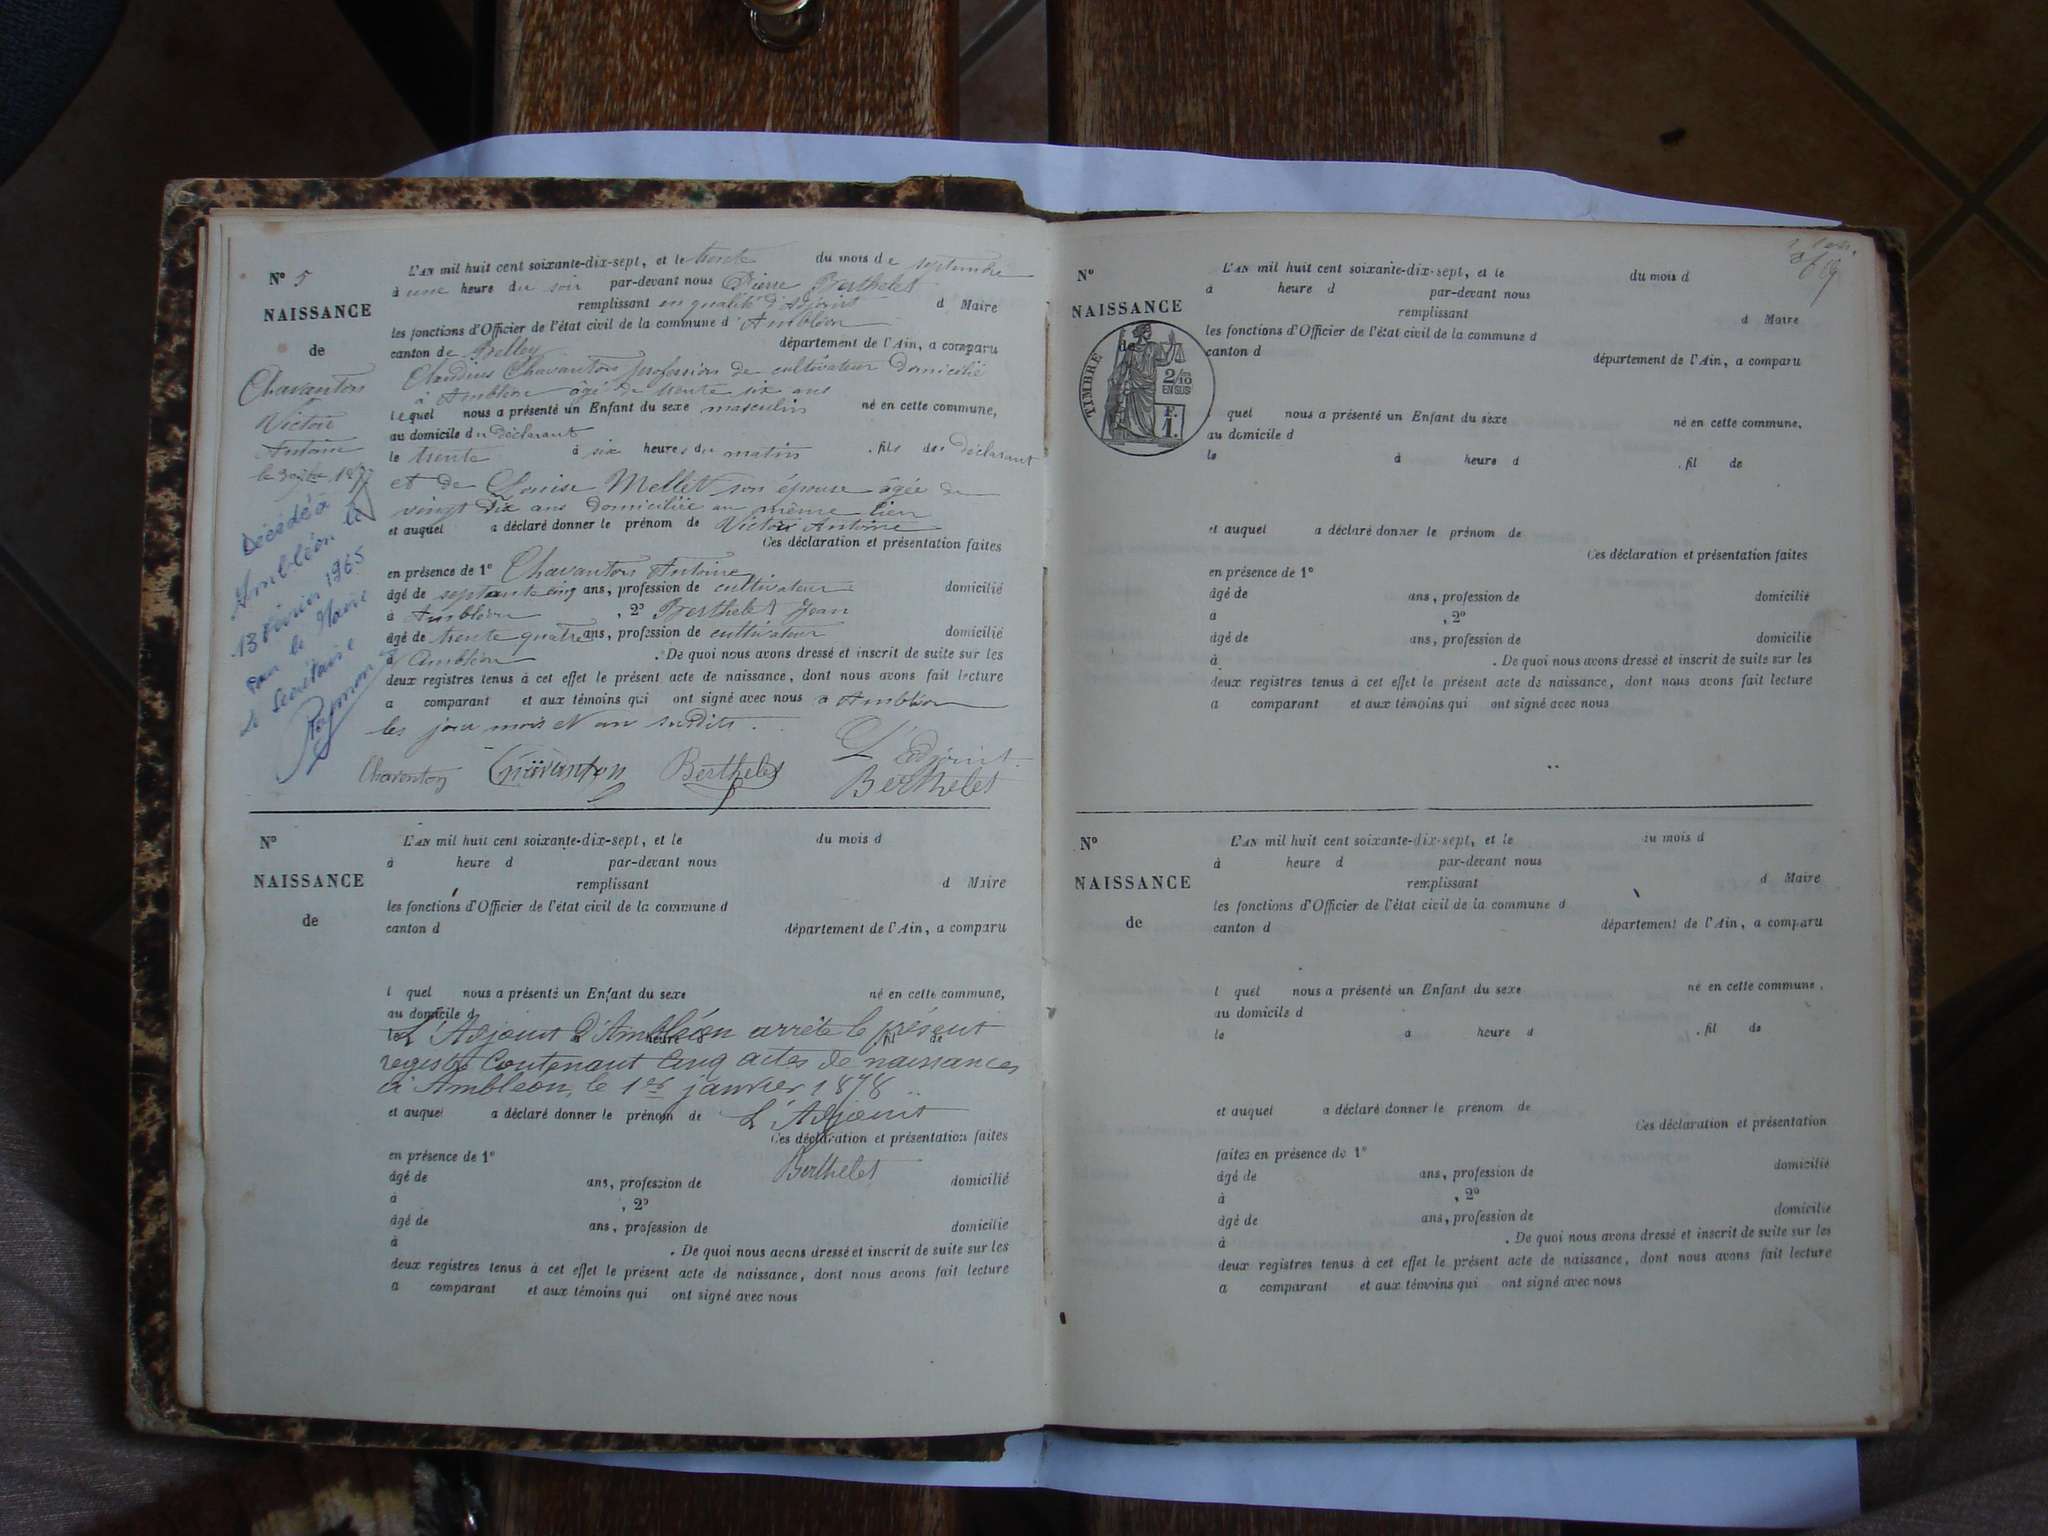 N° 5
NAISSANCE
de
Chavanton
Victor
Antoine
le 30 7bre 1877
Décédé à
Ambléon le
13 février 1965
Pour le Maire
le Secrétaire
L'AN mil huit cent soixante-dix-sept, et le trente du mois de septembre
à une heure du soir par-devant nous Pierre Berthelet
remplissant en qualité d'Adjoint d Maire
les fonctions d'Officier de l'état civil de la commune d'Ambléon
canton de Belley département de l'Ain, a comparu
Claudius Chavanton profession de cultivateur domicilié
à Ambléon âgé de trente six ans
lequel nous a présenté un Enfant du sexe masculin né en cette commune,
au domicile du déclarant
le trente à six heures du matin . fils du déclarant
et de Louise Mellet son épouse âgée de
vingt dix ans domiciliée au même lieu
et auquel a déclaré donner le prénom de Victor Antoine
Ces déclaration et présentation faites
en présence de 1° Chavanton Antoine
âgé de septante cinq ans, profession de cultivateur domicilié
à Ambléon , 2° Berthelet Jean
âgé de trente quatre ans, profession de cultivateur domicilié
à Ambléon . De quoi nous avons dressé et inscrit de suite sur les
deux registres tenus à cet effet le présent acte de naissance, dont nous avons fait lecture
a comparant et aux témoins qui ont signé avec nous à Ambléon
les jour mois et an susdits.
L'Adjoint
Chavanton Chavanton Berthelet Berthelet
N°
NAISSANCE
de
L'AN mil huit cent soixante-dix-sept, et le du mois d
à heure d par-devant nous
remplissant d Maire
les fonctions d'Officier de l'état civil de la commune d
canton d département de l'Ain, a comparu
l quel nous a présenté un Enfant du sexe né en cette commune,
au domicile d
le à heure d . fil de
L'Adjoint d'Ambléon arrête le présent
registre contenant cinq actes de naissances
à Ambléon, le 1er janvier 1878
et auquel a déclaré donner le prénom de
L'Adjoint
Ces déclaration et présentation faites
en présence de 1°
Berthelet
âgé de ans, profession de domicilié
à , 2°
âgé de ans, profession de domicilié
à . De quoi nous avons dressé et inscrit de suite sur les
deux registres tenus à cet effet le présent acte de naissance, dont nous avons fait lecture
a comparant et aux témoins qui ont signé avec nous
N°
NAISSANCE
de
TIMBRE
2/10
EN SUS
F.
1.
L'AN mil huit cent soixante-dix-sept, et le du mois d
à heure d par-devant nous
remplissant d Maire
les fonctions d'Officier de l'état civil de la commune d
canton d département de l'Ain, a comparu
quel nous a présenté un Enfant du sexe né en cette commune,
au domicile d
le à heure d . fil de
et auquel a déclaré donner le prénom de
Ces déclaration et présentation faites
en présence de 1°
âgé de ans, profession de domicilié
à , 2°
âgé de ans, profession de domicilié
à . De quoi nous avons dressé et inscrit de suite sur les
deux registres tenus à cet effet le présent acte de naissance, dont nous avons fait lecture
a comparant et aux témoins qui ont signé avec nous
N°
NAISSANCE
de
L'AN mil huit cent soixante-dix-sept, et le du mois d
à heure d par-devant nous
remplissant d Maire
les fonctions d'Officier de l'état civil de la commune d
canton d département de l'Ain, a comparu
l quel nous a présenté un Enfant du sexe né en cette commune,
au domicile d
le à heure d . fil de
et auquel a déclaré donner le prénom de
Ces déclaration et présentation
faites en présence de 1°
âgé de ans, profession de domicilié
à , 2°
âgé de ans, profession de domicilié
à . De quoi nous avons dressé et inscrit de suite sur les
deux registres tenus à cet effet le présent acte de naissance, dont nous avons fait lecture
a comparant et aux témoins qui ont signé avec nous